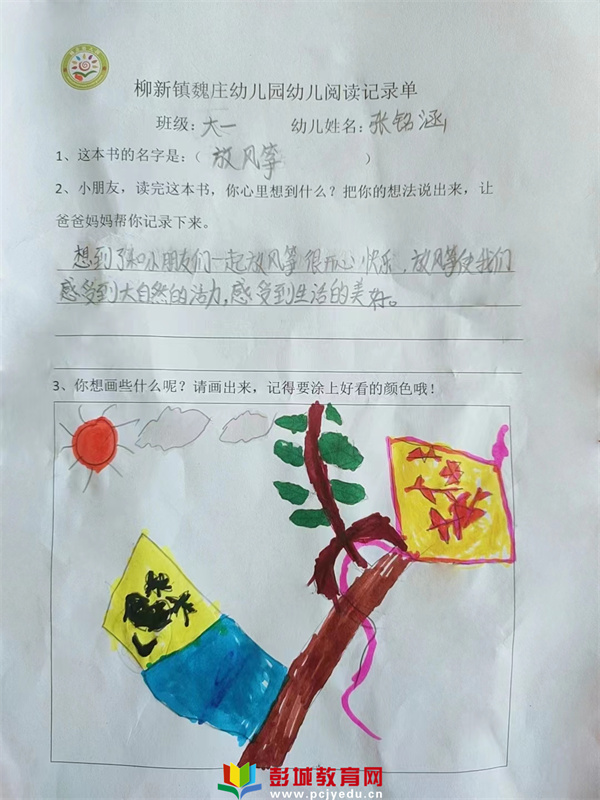 柳新镇魏庄幼儿园幼儿阅读记录单
班级：大一 幼儿姓名：张铭涵
1、这本书的名字是：（ 放风筝 ）
2、小朋友，读完这本书，你心里想到什么？把你的想法说出来，让
爸爸妈妈帮你记录下来。
想到了和小朋友们一起放风筝很开心快乐，放风筝使我们
感受到大自然的活力，感受到生活的美好。
3、你想画些什么呢？请画出来，记得要涂上好看的颜色哦！
彭城教育网
www.pcjyedu.cn